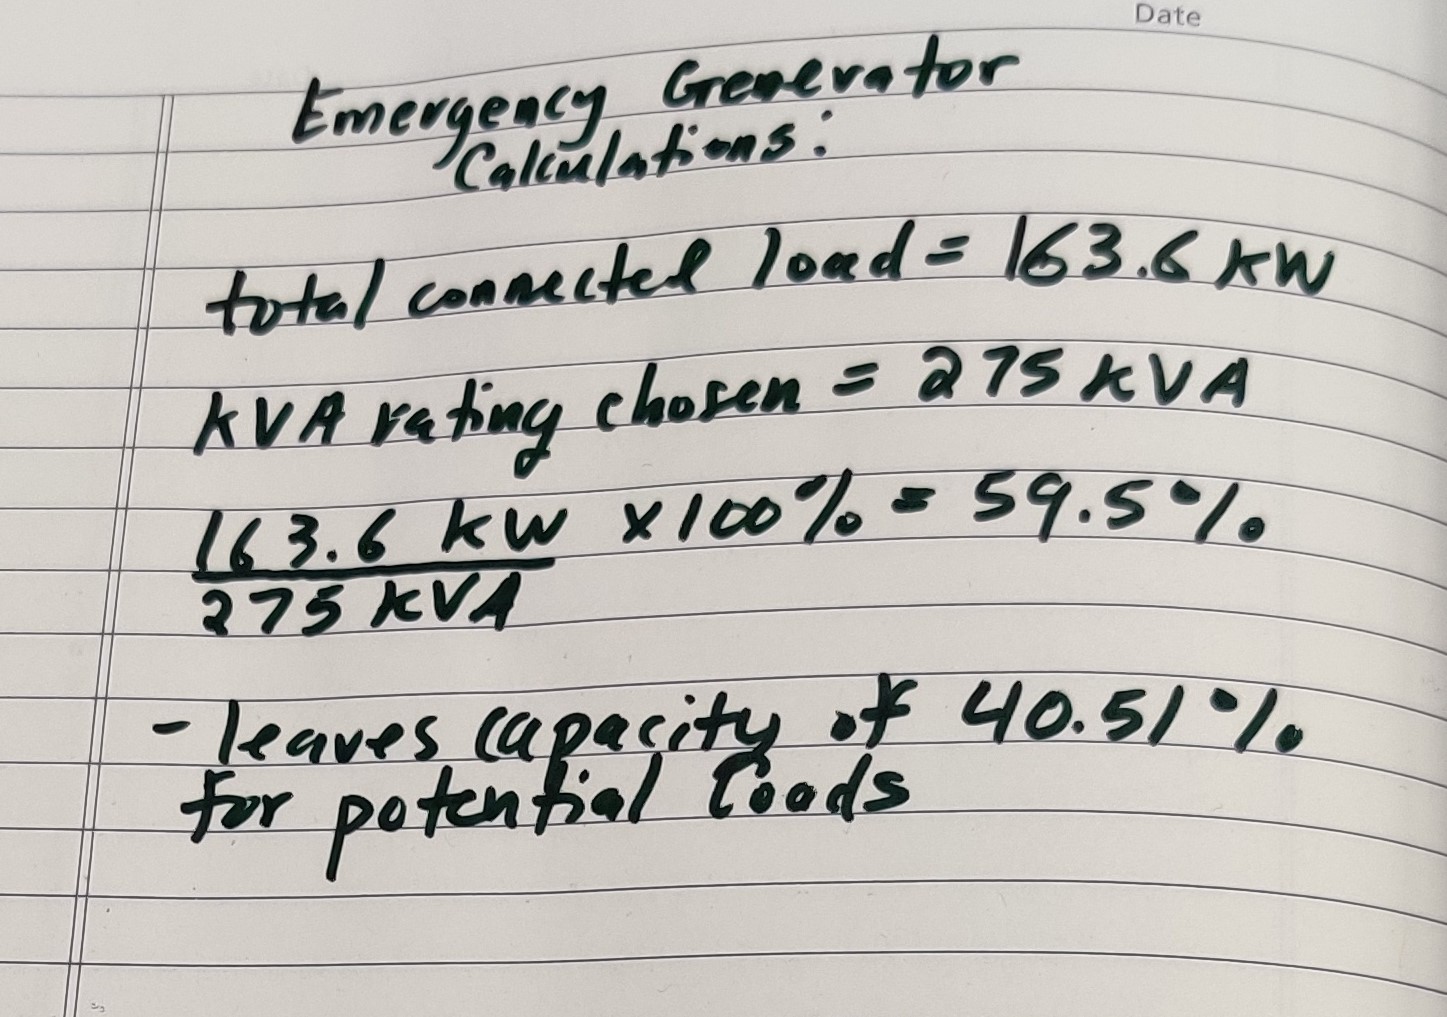 Date
Emergency Generator
Calculations:
total connected load = 163.6 kW
kVA rating chosen = 275 kVA
163.6 kW x 100% = 59.5%
275 kVA
- leaves capacity of 40.51%
for potential loads